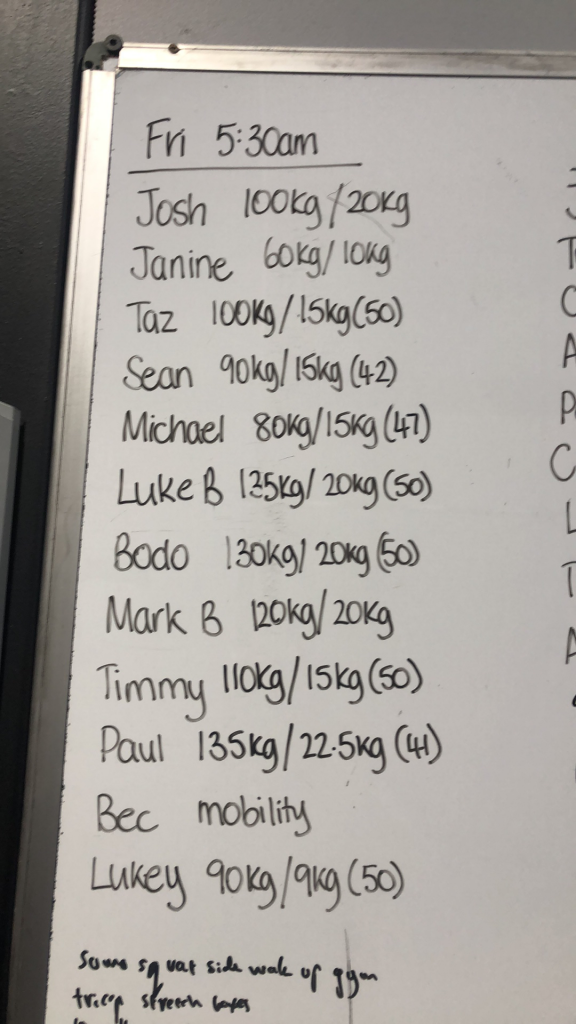 Fri 5:30am
Josh 100kg/20kg
Janine 60kg/10kg
Taz 100kg/15kg(50)
Sean 90kg/15kg(42)
Michael 80kg/15kg(47)
Luke B 135kg/20kg(50)
Bodo 130kg/20kg(50)
Mark B 120kg/20kg
Timmy 110kg/15kg(50)
Paul 135kg/22.5kg(41)
Bec mobility
Lukey 90kg/9kg(50)
squat side walk up gym
tricep stretch